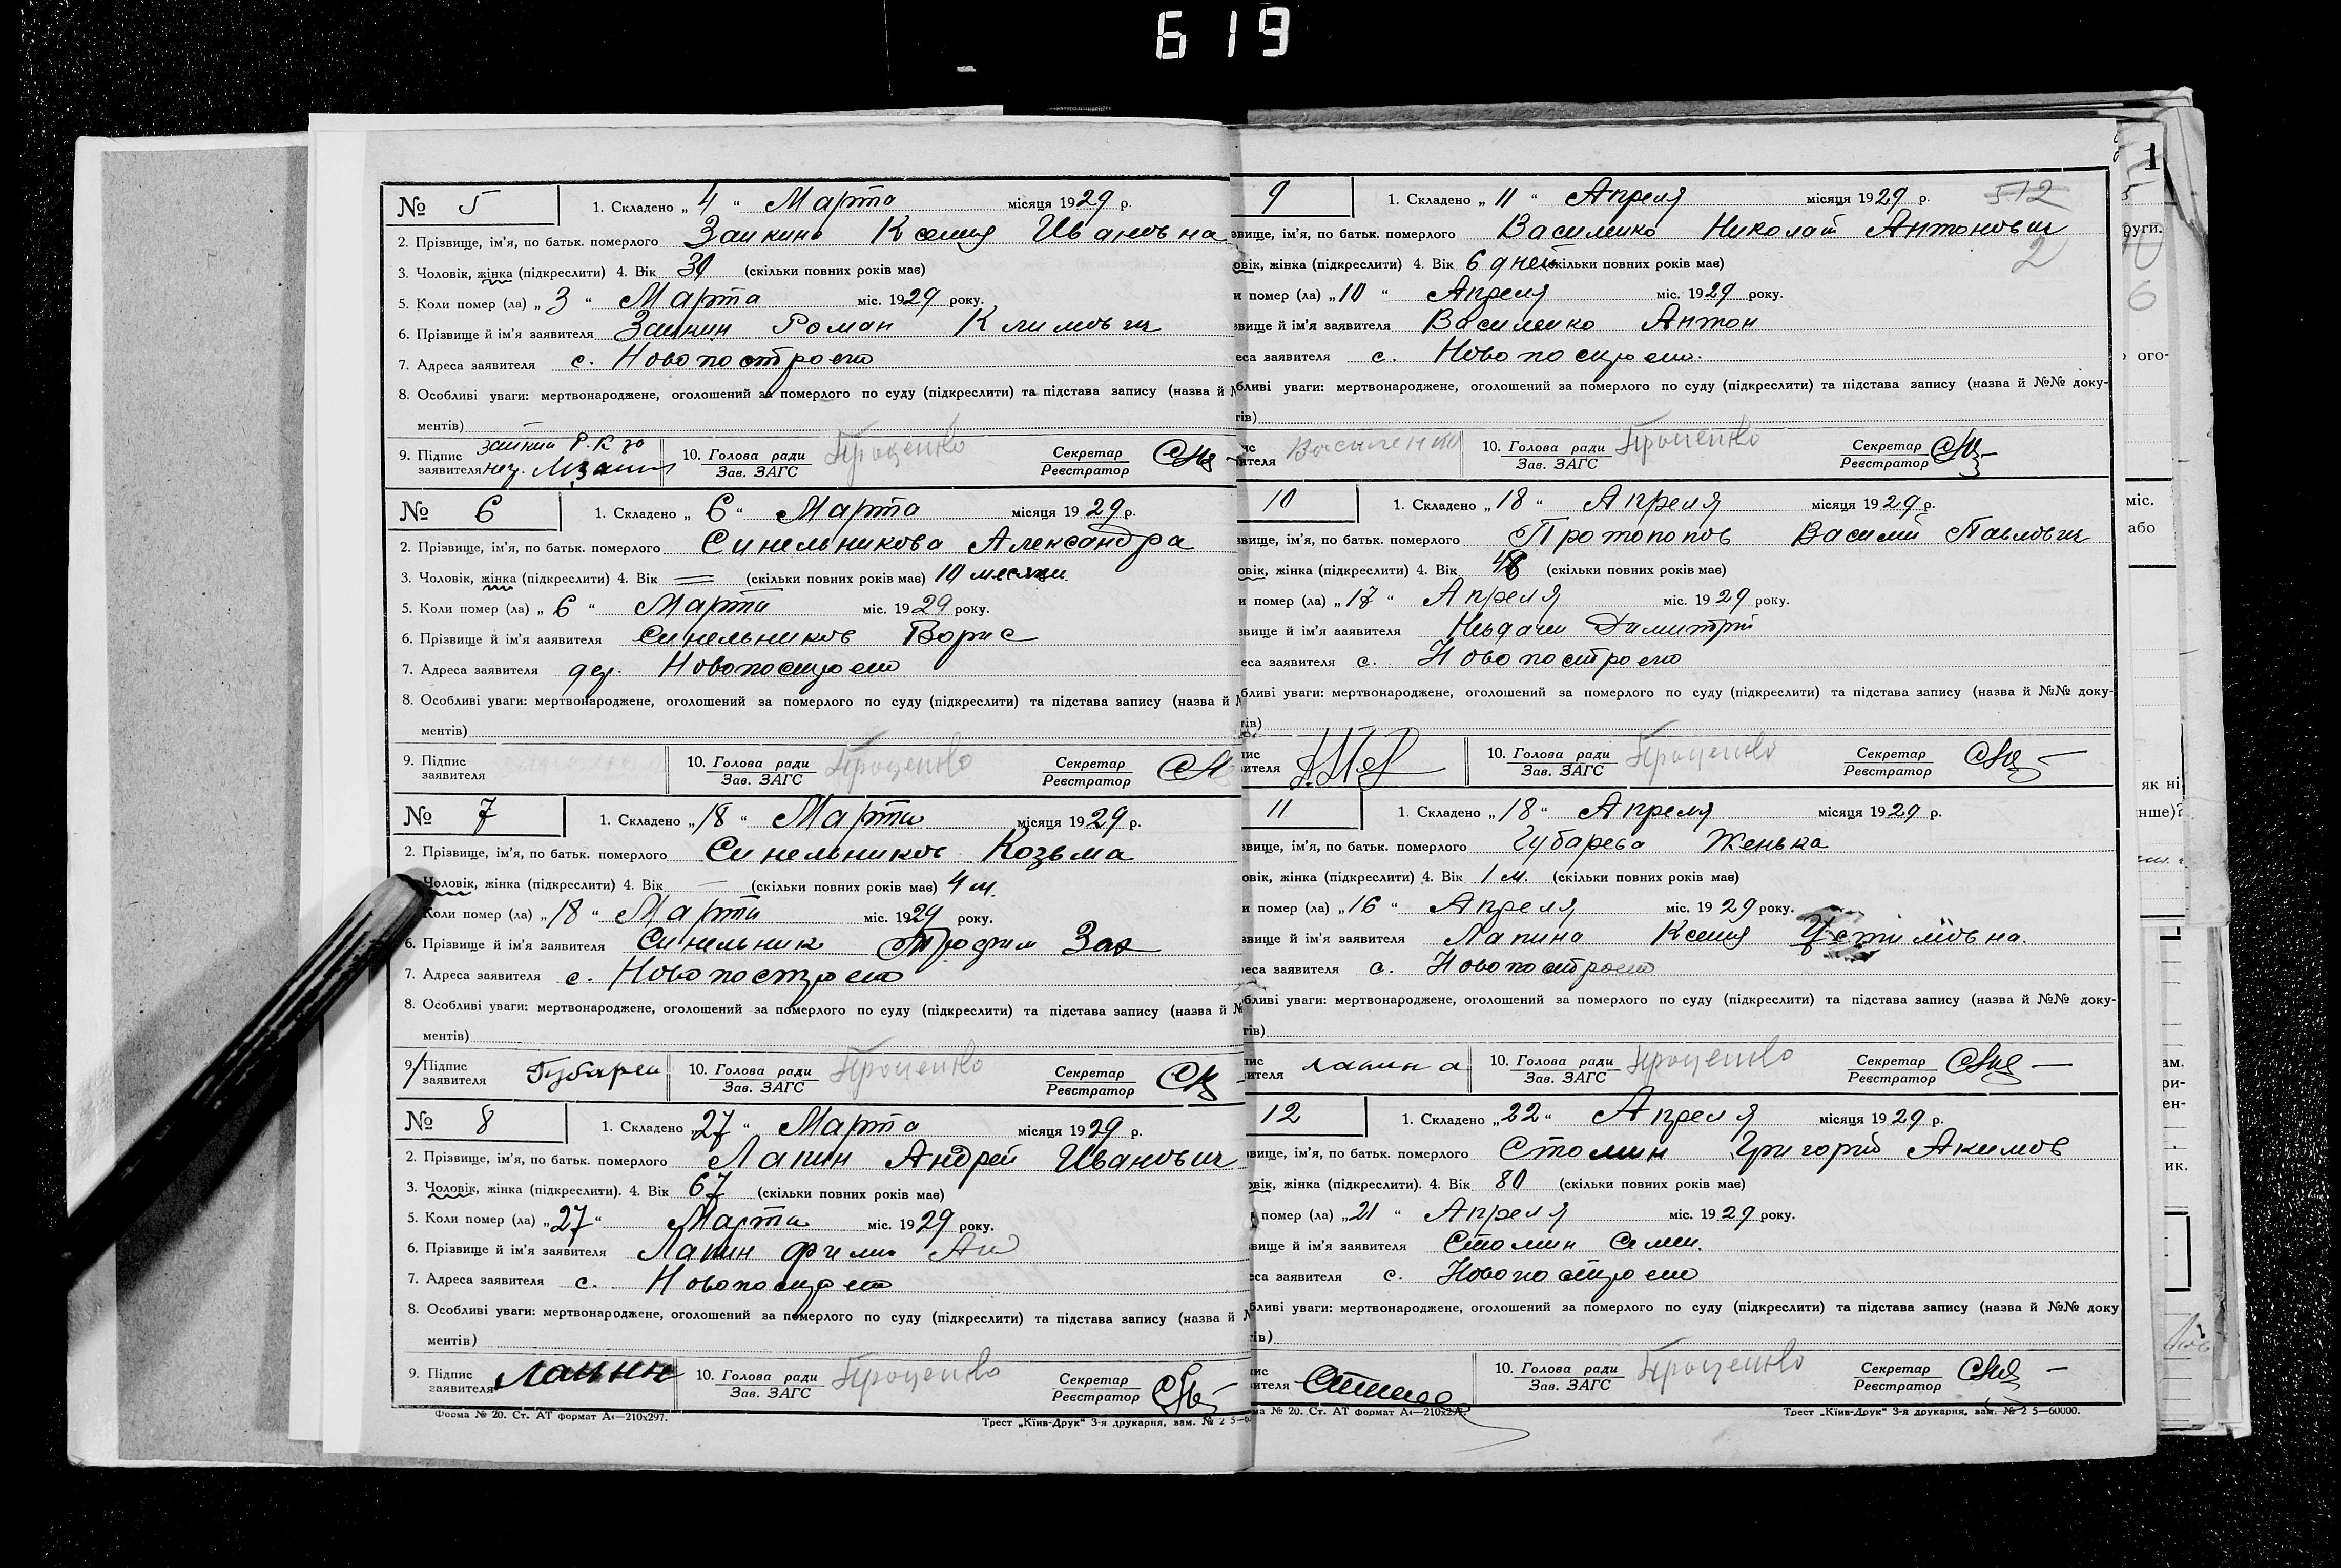 619
№ 5 1. Складено „ 4 “ Марта місяця 1929 р.
2. Прізвище, ім'я, по батьк. померлого Заикина Ксения Ивановна
3. Чоловік, жінка (підкреслити) 4. Вік (скільки повних років має)
5. Коли помер (ла) „ 3 “ Марта міс. 1929 року.
6. Прізвище й ім'я заявителя Заикин Роман Климович
7. Адреса заявителя с. Новопостроено
8. Особливі уваги: мертвонароджене, оголошений за померлого по суду (підкреслити) та підстава запису (назва й
ментів)
9. Підпис заявителя 10. Голова ради Зав. ЗАГС Проценко Секретар Реєстратор
№ 6 1. Складено „ 6 “ Марта місяця 1929 р.
2. Прізвище, ім'я, по батьк. померлого Синельникова Александра
3. Чоловік, жінка (підкреслити) 4. Вік (скільки повних років має) 10 месяци
5. Коли помер (ла) „ 6 “ Марта міс. 1929 року.
6. Прізвище й ім'я заявителя Синельников Борис
7. Адреса заявителя дер. Новопостроено
8. Особливі уваги: мертвонароджене, оголошений за померлого по суду (підкреслити) та підстава запису (назва й
ментів)
9. Підпис заявителя 10. Голова ради Зав. ЗАГС Проценко Секретар Реєстратор
№ 7 1. Складено „ 18 “ Марта місяця 1929 р.
2. Прізвище, ім'я, по батьк. померлого Синельников Козьма
Чоловік, жінка (підкреслити) 4. Вік — (скільки повних років має) 4 м.
Коли помер (ла) „ 18 “ Марта міс. 1929 року.
6. Прізвище й ім'я заявителя Синельник Трофим Зах
7. Адреса заявителя с. Новопостроено
8. Особливі уваги: мертвонароджене, оголошений за померлого по суду (підкреслити) та підстава запису (назва й №
ментів)
9. Підпис заявителя Губарев 10. Голова ради Зав. ЗАГС Проценко Секретар Реєстратор
№ 8 1. Складено „ 27 “ Марта місяця 1929 р.
2. Прізвище, ім'я, по батьк. померлого Лапин Андрей Иванович
3. Чоловік, жінка (підкреслити). 4. Вік 67 (скільки повних років має)
5. Коли помер (ла) „ 27 “ Марта міс. 1929 року.
6. Прізвище й ім'я заявителя Лапин Филип Ан
7. Адреса заявителя с. Новопостроено
8. Особливі уваги: мертвонароджене, оголошений за померлого по суду (підкреслити) та підстава запису (назва й
ментів)
9. Підпис заявителя Лапин 10. Голова ради Зав. ЗАГС Проценко Секретар Реєстратор
Форма № 20. Ст. АТ формат А4—210x297. Трест „Київ-Друк“ 3-я друкарня, зам. № 2 5—6
9 1. Складено „ 11 “ Апреля місяця 1929 р. 512
звище, ім'я, по батьк. померлого Василенко Николай Антонович
овік, жінка (підкреслити) 4. Вік 6 дней (скільки повних років має) 2
и помер (ла) „ 10 “ Апреля міс. 1929 року.
звище й ім'я заявителя Василенко Антон
еса заявителя с. Новопостроено.
бливі уваги: мертвонароджене, оголошений за померлого по суду (підкреслити) та підстава запису (назва й №№ доку-
тів)
ис ителя Василенко 10. Голова ради Зав. ЗАГС Проценко Секретар Реєстратор
10 1. Складено „ 18 “ Апреля місяця 1929 р.
звище, ім'я, по батьк. померлого Протопопов Василий Павлович
овік, жінка (підкреслити) 4. Вік 48 (скільки повних років має)
и помер (ла) „ 17 “ Апреля міс. 1929 року.
звище й ім'я заявителя Невдачи Димитрій
еса заявителя с. Новопостроено
бливі уваги: мертвонароджене, оголошений за померлого по суду (підкреслити) та підстава запису (назва й №№ доку-
тів)
пис ителя 10. Голова ради Зав. ЗАГС Проценко Секретар Реєстратор
11 1. Складено „ 18 “ Апреля місяця 1929 р.
звище, ім'я, по батьк. померлого Губарева Женька
овік, жінка (підкреслити) 4. Вік 1 м. (скільки повних років має)
и помер (ла) „ 16 “ Апреля міс. 1929 року.
звище й ім'я заявителя Лапина Ксения Устимовна.
еса заявителя с. Новопостроено
бливі уваги: мертвонароджене, оголошений за померлого по суду (підкреслити) та підстава запису (назва й №№ доку-
тів)
пис ителя лапина 10. Голова ради Зав. ЗАГС Проценко Секретар Реєстратор
12 1. Складено „ 22 “ Апреля місяця 1929 р.
звище, ім'я, по батьк. померлого Стомин Григорій Акимов
овік, жінка (підкреслити). 4. Вік 80 (скільки повних років має)
помер (ла) „ 21 “ Апреля міс. 1929 року.
звище й ім'я заявителя Стомин Семен.
еса заявителя с. Новопостроено
бливі уваги: мертвонароджене, оголошений за померлого по суду (підкреслити) та підстава запису (назва й №№ доку
ів)
ис ителя 10. Голова ради Зав. ЗАГС Проценко Секретар Реєстратор
ма № 20. Ст. АТ формат А4—210x297. Трест „Київ-Друк“ 3-я друкарня, зам. № 2 5—60000.
1
руги.
ого-
міс.
або
як ні
нше)?
ам.
ри-
ен-
ик.